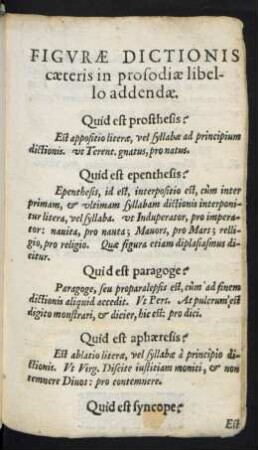 FIGVRÆ DICTIONIS
cæteris in prosodiæ libel-
lo addendæ.
Quid est prosthesis?
Est appositio literæ, vel syllabæ ad principium
dictionis. vt Terent. gnatus, pro natus.
Quid est epenthesis?
Epenthesis, id est, interpositio est, cùm inter
primam, & vltimam syllabam dictionis interponi-
tur litera, vel syllaba. vt Induperator, pro impera-
tor: nauita, pro nauta; Mauors, pro Mars; relli-
gio, pro religio. Quæ figura etiam diplasiasmus di-
citur.
Quid est paragoge?
Paragoge, seu proparalepsis est, cùm ad finem
dictionis aliquid accedit. Vt Pers. At pulcrum est
digito monstrari, & dicier, hic est: pro dici.
Quid est aphæresis?
Est ablatio literæ, vel syllabæ à principio di-
ctionis. Vt Virg. Discite iustitiam moniti, & non
temnere Diuos: pro contemnere.
Quid est syncope?
Est